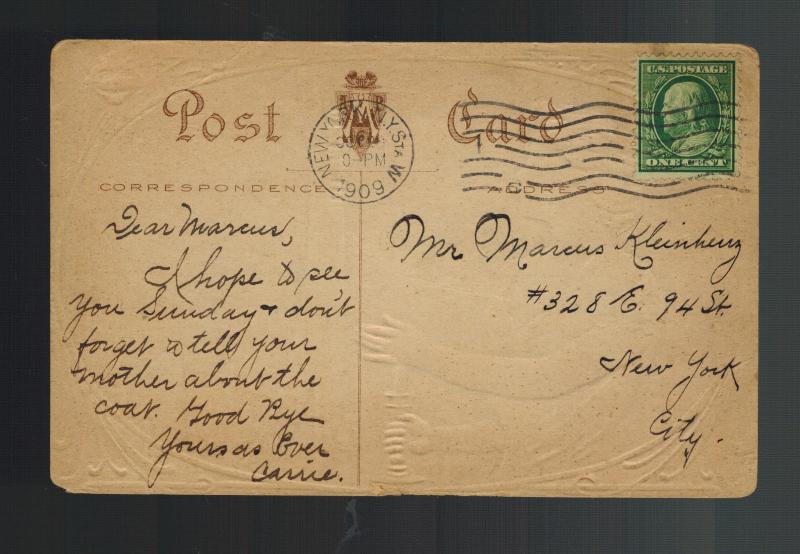 Post Card
U.S. POSTAGE
ONE CENT
NEW YORK, N.Y. STA W
PM
1909
CORRESPONDENCE
ADDRESS
Dear Marcus,
I hope to see
you Sunday & don't
forget to tell your
mother about the
coat. Good Bye
Yours as Ever
Carrie.
Mr Marcus Kleinhenz
#328 E. 94 St.
New York
City.